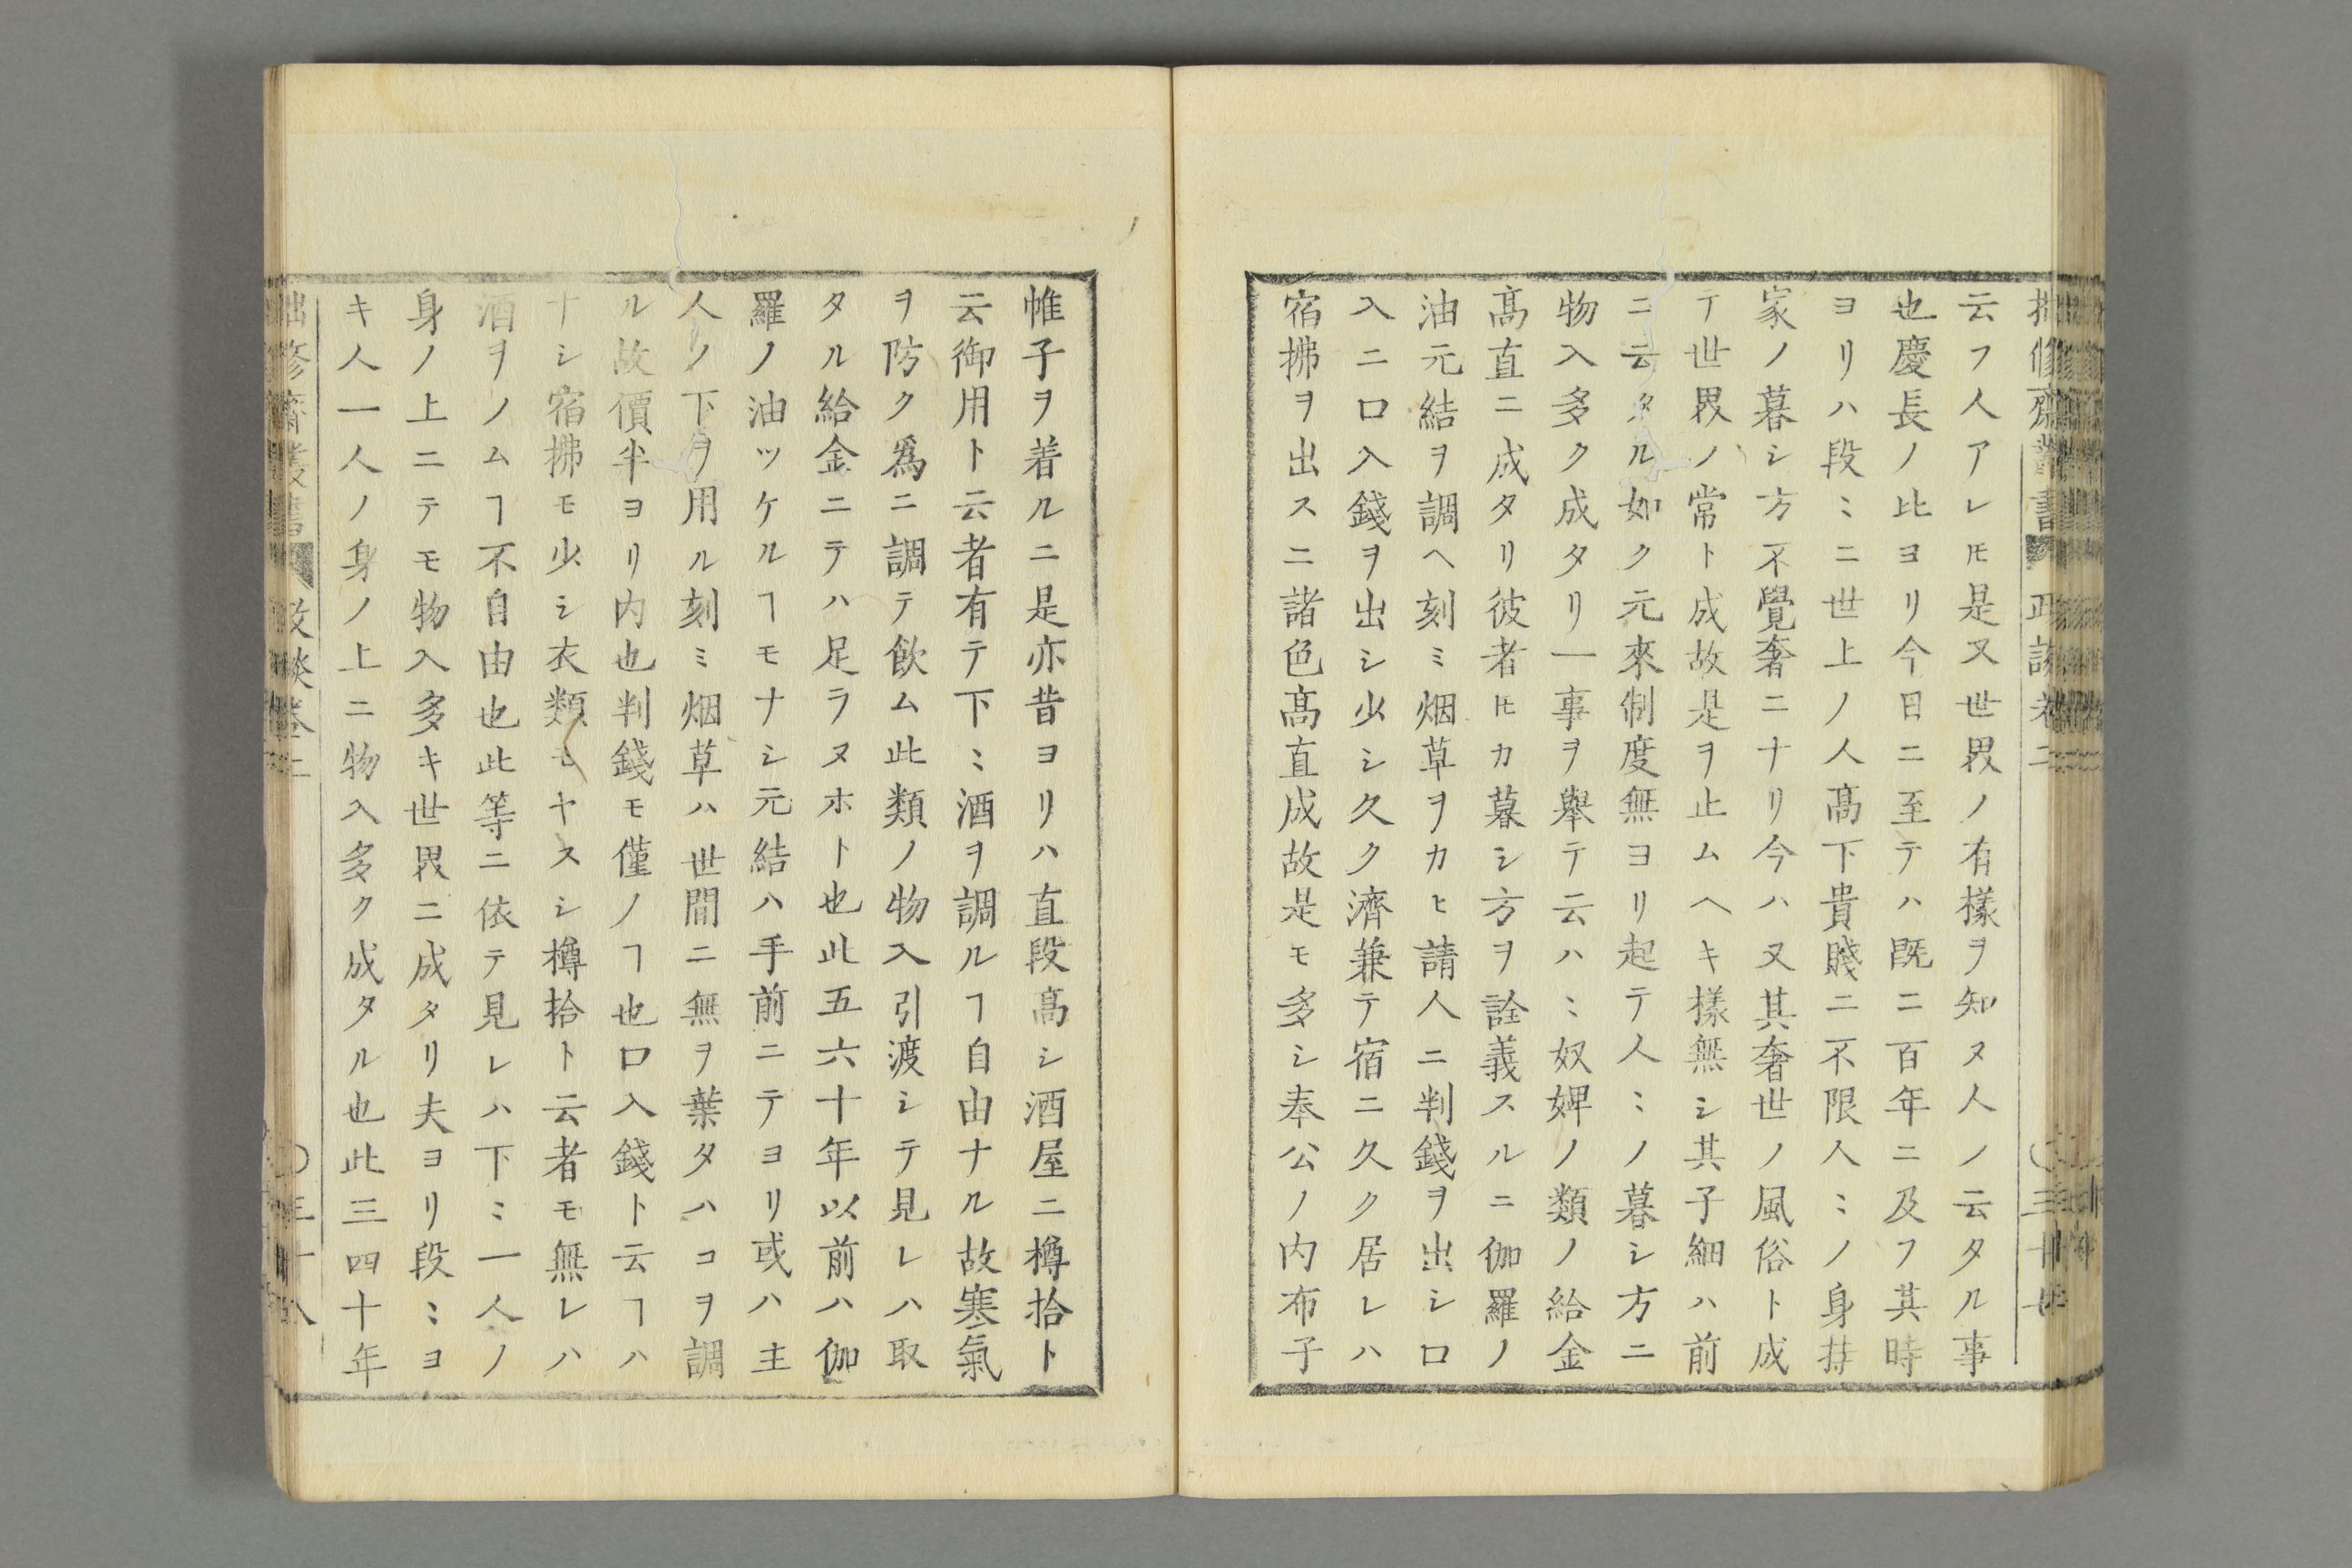 云フ人アレ𪜈是又世界ノ有樣ヲ知ヌ人ノ云タル事
也慶長ノ比ヨリ今日ニ至テハ既ニ百年ニ及フ其時
ヨリハ段〻ニ世上ノ人髙下貴賤ニ不限人〻ノ身持
家ノ暮シ方不覺奢ニナリ今ハ又其奢世ノ風俗ト成
テ世界ノ常ト成故是ヲ止ムヘキ樣無シ其子細ハ前
ニ云タル如ク元來制度無ヨリ起テ人〻ノ暮シ方ニ
物入多ク成タリ一事ヲ擧テ云ハ〻奴婢ノ類ノ給金
髙直ニ成タリ彼者𪜈カ暮シ方ヲ詮義スルニ伽羅ノ
油元結ヲ調ヘ刻ミ烟草ヲカヒ請人ニ判錢ヲ出シ口
入ニ口入錢ヲ出シ少シ久ク濟兼テ宿ニ久ク居レハ
宿拂ヲ出スニ諸色髙直成故是モ多シ奉公ノ内布子
帷子ヲ着ルニ是亦昔ヨリハ直段髙シ酒屋ニ樽拾ト
云御用ト云者有テ下〻酒ヲ調ルヿ自由ナル故寒氣
ヲ防ク爲ニ調テ飮ム此類ノ物入引渡シテ見レハ取
タル給金ニテハ足ラヌホト也此五六十年以前ハ伽
羅ノ油ツケルヿモナシ元結ハ手前ニテヨリ或ハ主
人ノ下ヲ用ル刻ミ烟草ハ世間ニ無ヲ葉タハコヲ調
ル故價半ヨリ内也判錢モ僅ノヿ也口入錢ト云ヿハ
ナシ宿拂モ少シ衣類モヤスシ樽拾ト云者モ無レハ
酒ヲノムヿ不自由也此等ニ依テ見レハ下〻一人ノ
身ノ上ニテモ物入多キ世界ニ成タリ夫ヨリ段〻ヨ
キ人一人ノ身ノ上ニ物入多ク成タル也此三四十年